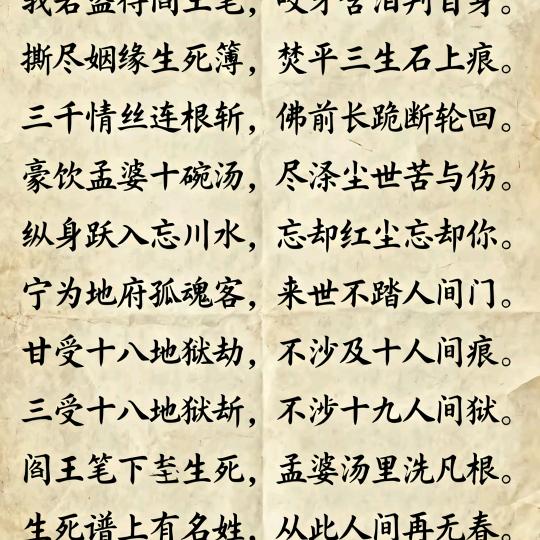 我若盗得阎王笔，咬牙含泪判自身。
撕尽姻缘生死簿，焚平三生石上痕。
三千情丝连根斩，佛前长跪断轮回。
豪饮孟婆十碗汤，尽涤尘世苦与伤。
纵身跃入忘川水，忘却红尘忘却你。
宁为地府孤魂客，来世不踏人间门。
甘受十八地狱劫，不沙及十人间痕。
三受十八地狱斦，不涉十九人间狱。
阎王笔下生死，孟婆汤里洗凡根。
生死谱上有名姓，从此人间再无春。